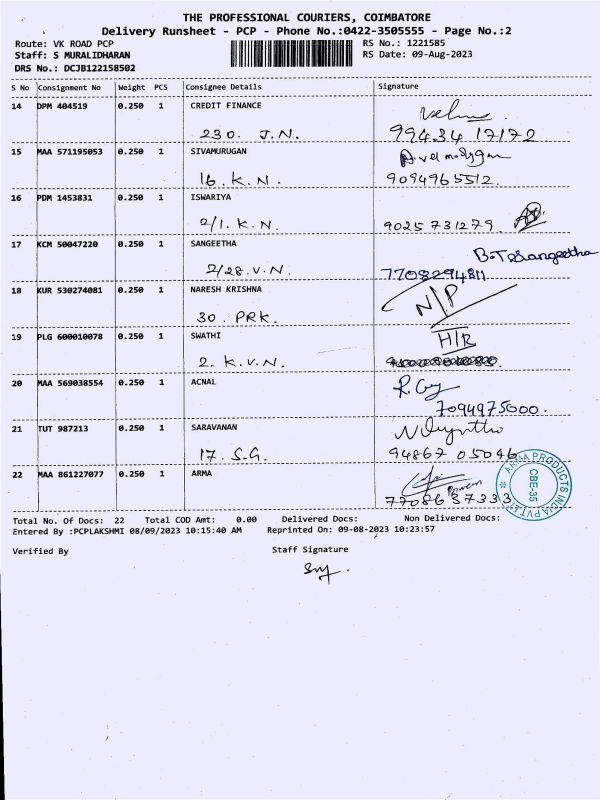 THE PROFESSIONAL COURIERS, COIMBATORE
Delivery Runsheet - PCP - Phone No.:0422-3505555 - Page No.:2
Route: VK ROAD PCP RS No.: 1221585
Staff: S MURALIDHARAN RS Date: 09-Aug-2023
DRS No.: DCJB122158502
S No Consignment No Weight PCS Consignee Details Signature
14 DPM 404519 0.250 1 CREDIT FINANCE
230. J.N. 99434 17172
15 MAA 571195053 0.250 1 SIVAMURUGAN
16. K.N. 9094965512.
16 PDM 1453831 0.250 1 ISWARIYA
2/1. K.N. 9025731279.
17 KCM 50047220 0.250 1 SANGEETHA
2/28.V.N. 7708294811
18 KUR 530274081 0.250 1 NARESH KRISHNA N/P
30. PRK.
19 PLG 600010078 0.250 1 SWATHI H/R
2. K.V.N.
20 MAA 569038554 0.250 1 ACNAL
7094975000.
21 TUT 987213 0.250 1 SARAVANAN
17. S.G. 94867 05046
22 MAA 861227077 0.250 1 ARMA
7708637333
ARMA PRODUCTS INDIA PVT.LTD
CBE-35
Total No. Of Docs: 22 Total COD Amt: 0.00 Delivered Docs: Non Delivered Docs:
Entered By :PCPLAKSHMI 08/09/2023 10:15:40 AM Reprinted On: 09-08-2023 10:23:57
Verified By Staff Signature